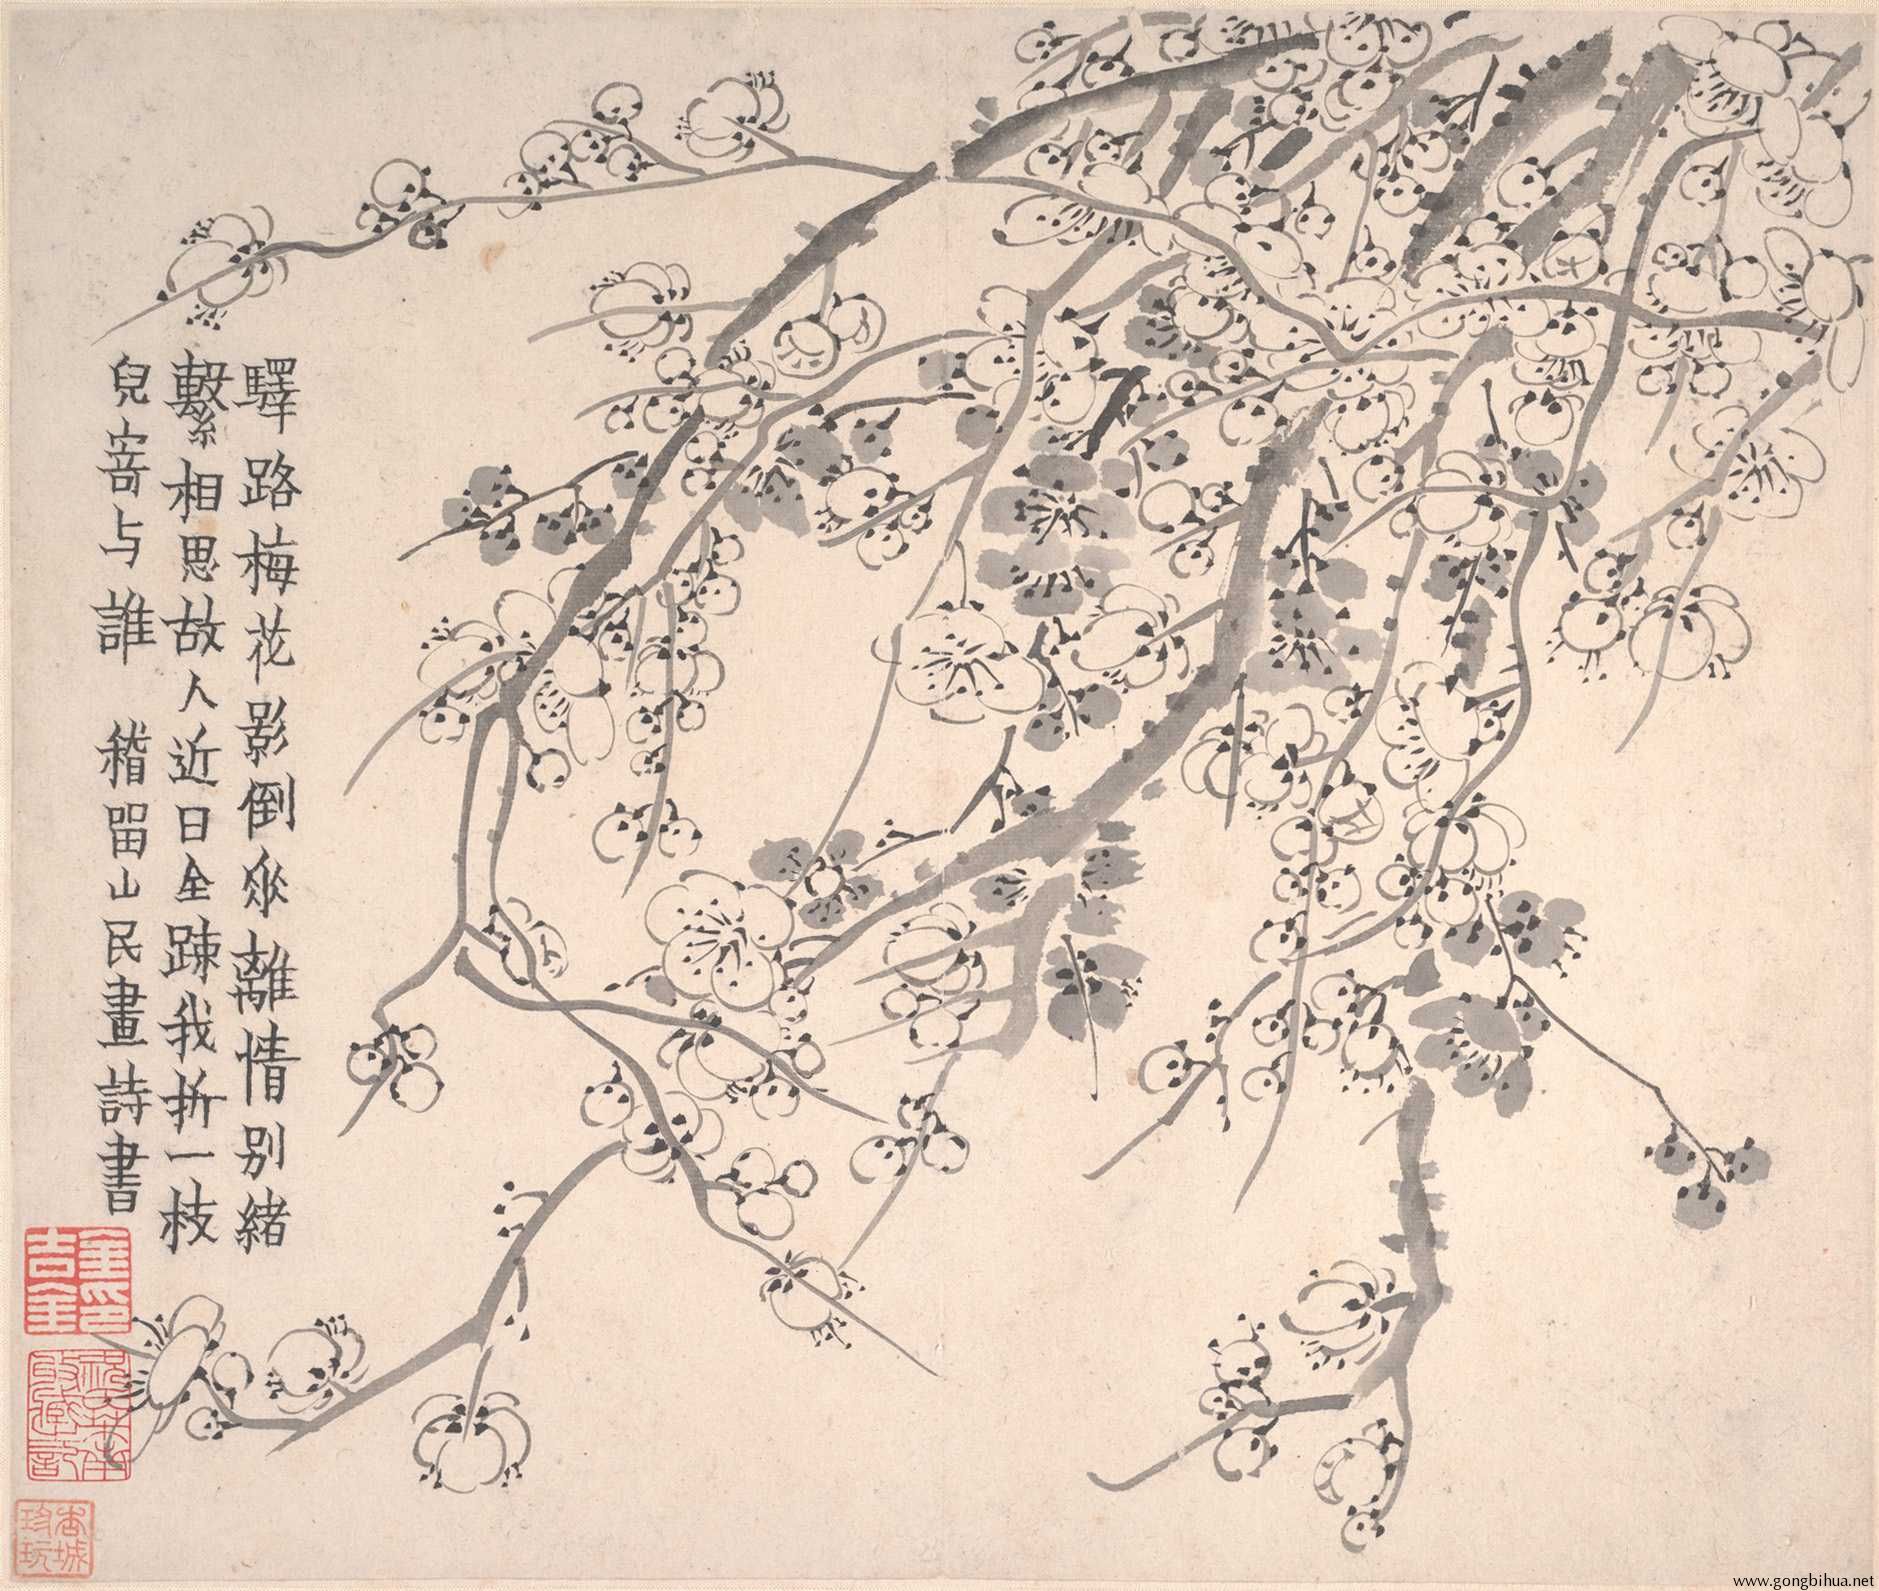 驛路梅花影倒𠂹離情別緒
繫相思故人近日全疎我折一枝
兒寄与誰 稽留山民畫詩書
金吉金印
杏城
玫玩
www.gongbihua.net